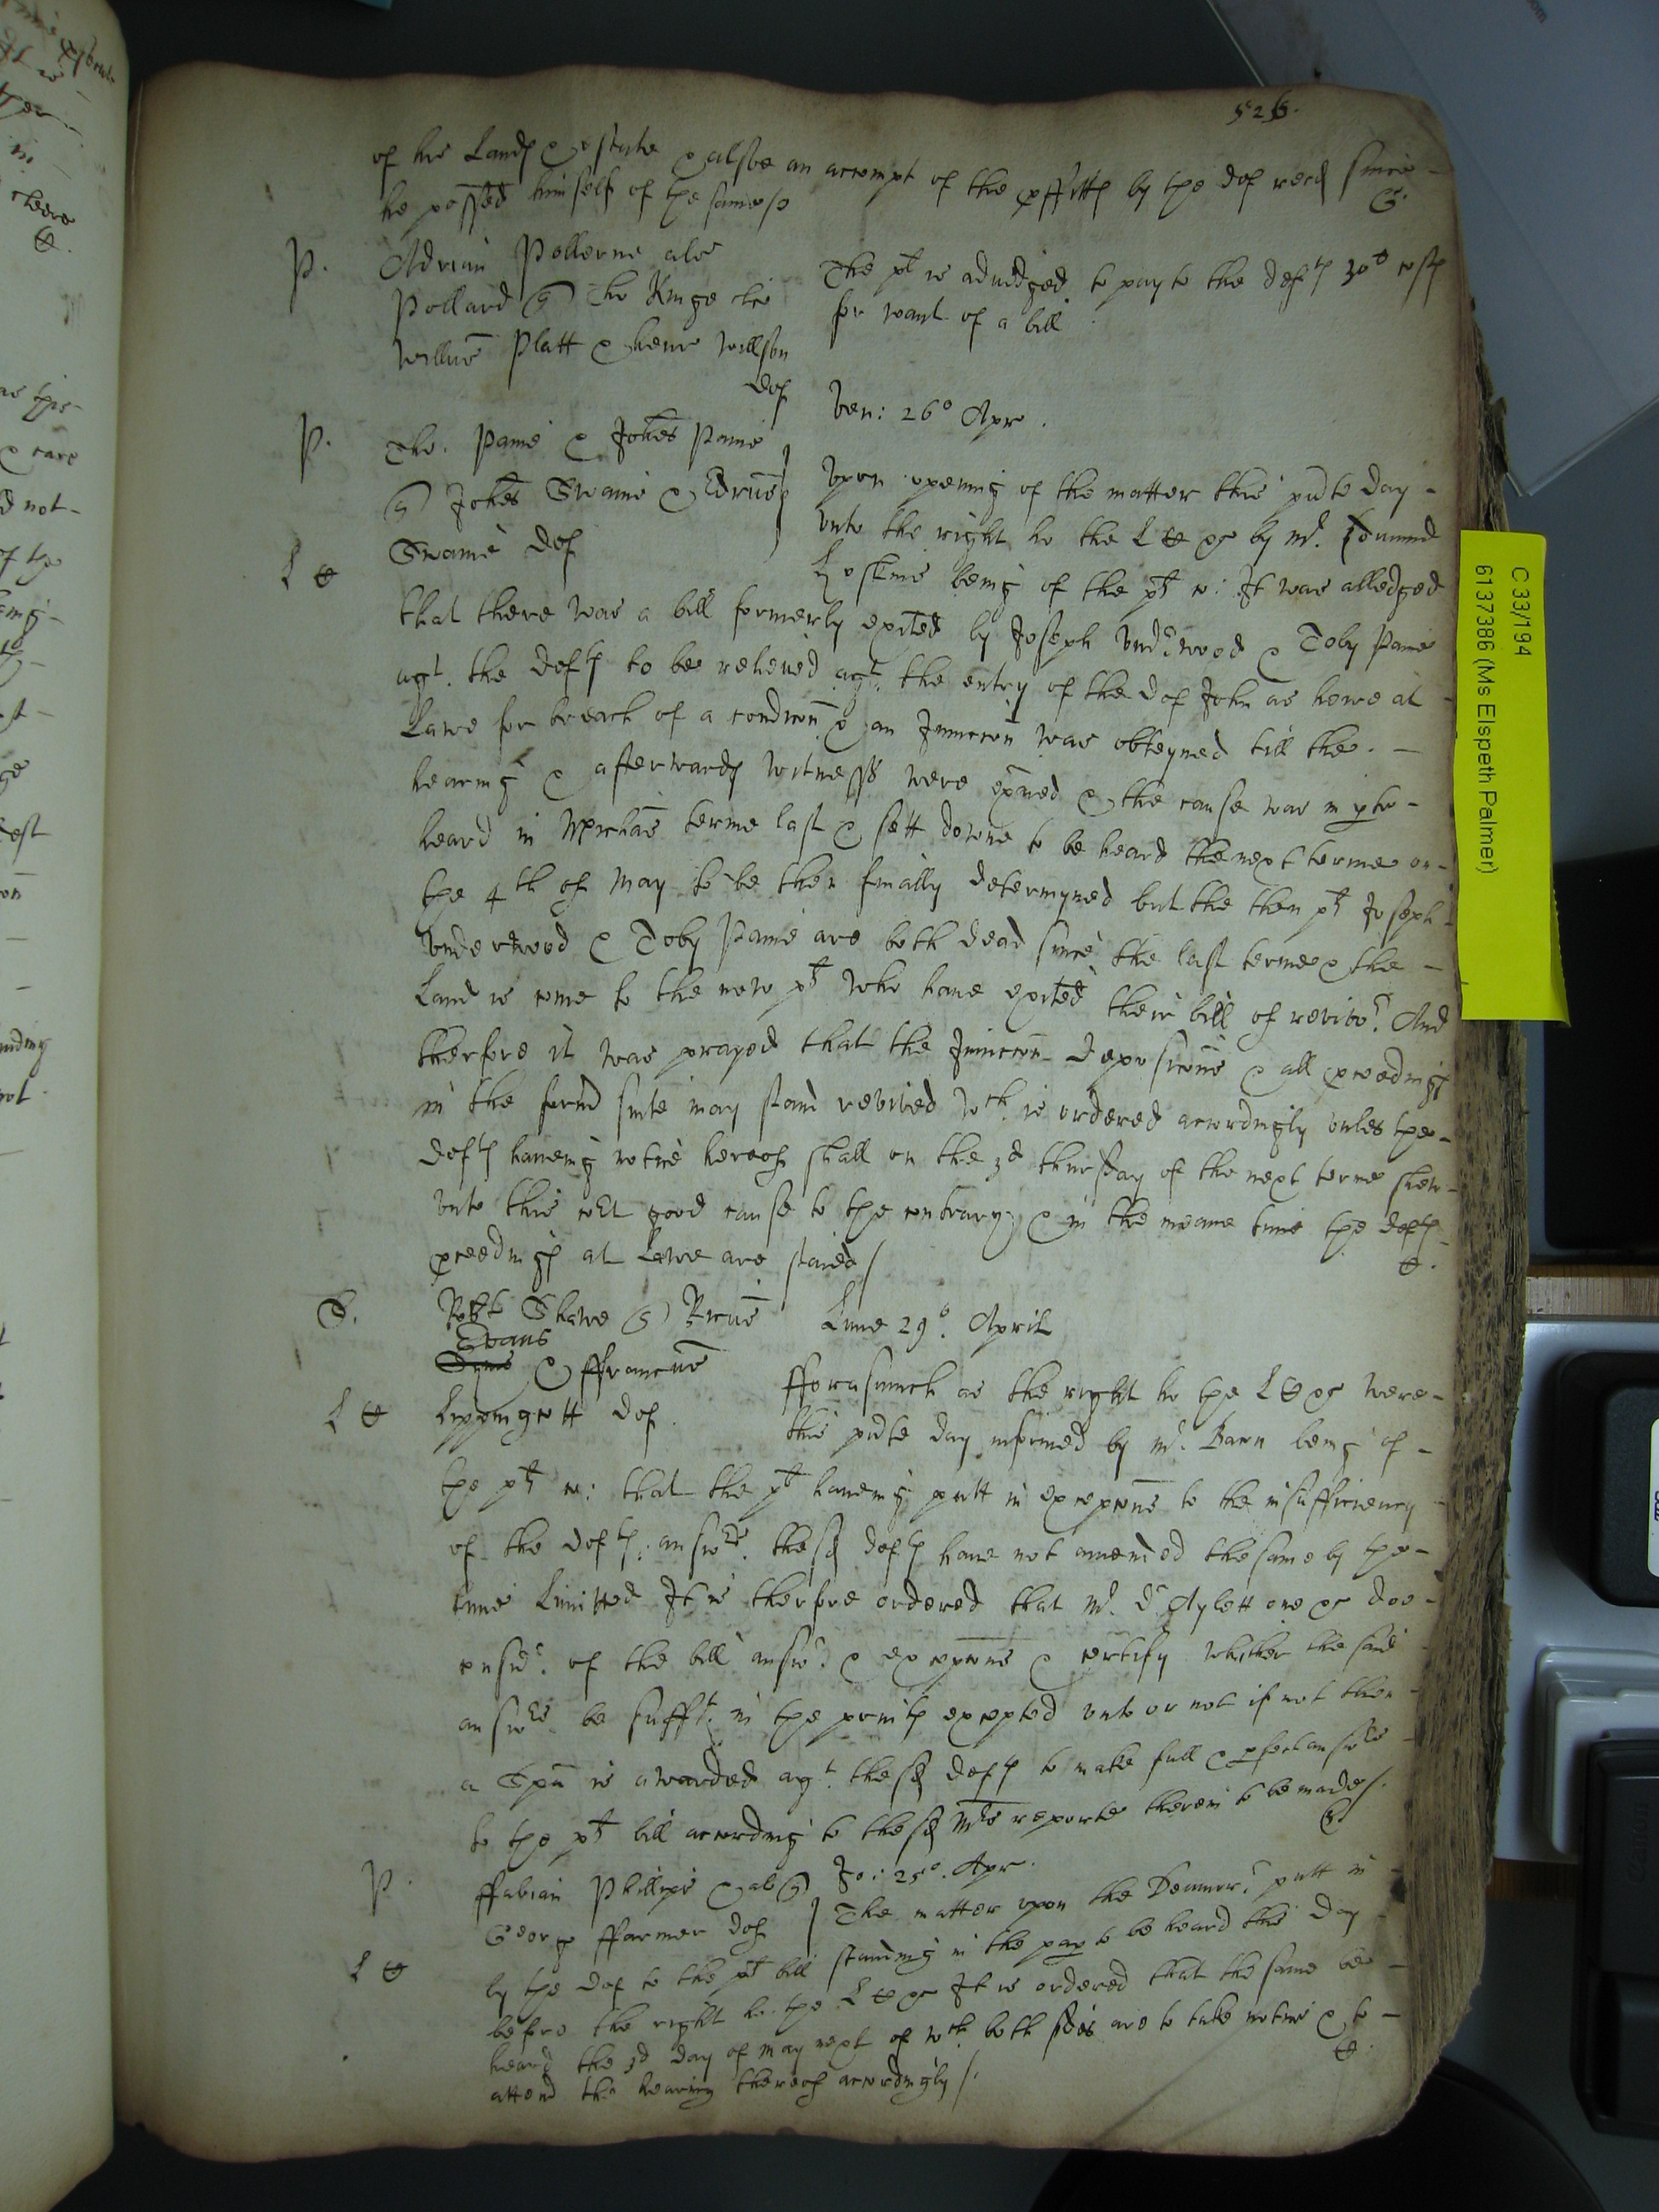 526.
of his Lands & estate & alsoe an accompt of the pffitts by the def recd since
he possed himself of the same/
P. Adrian Pollerne als
Pollard Tho Kinge
Willm Platt & henr Willson
def
The plt is adiudged to pay to the defts 30s costs
for want of a bill
Ven: 26o Apr.
P. Tho. Paine & Johes Paine
Johes Swaine & Edrus
Swaine def
Vpon opening of the matter this pnte day
vnto the right ho the L by Mr. Edmund
Hoskins being of the plts c: It was alledged
that there was a bill formerly exited by Joseph Vnderwood & Toby Paine
agt. the defts to be releiued agt. the entry of the def John as heire at
Lawe for breach of a condicon & an Iniuncon was obteyned till the
hearing & afterwards witnesses were exned & the cause was in pte
heard in Michas terme last & sett downe to be heard the next terme on
the 4th of May to be then finally determyned but the then plts Joseph
Vnderwood & Toby Paine are both dead since the last terme & the
Land is come to the now plts who haue exited their bill of revivor. And
therfore it was prayed that the Iniuncon deposicons & all pceedings
in the formr suite may stand revived wch. is ordered accordingly vnles the
defts haueing notice hereof shall on the 3d thursday of the next terme shew
vnto this cort good cause to the contrary & in the meane time the defts
pceedings at Lawe are staied/
S. Robt Shawe Ricus
Evans
& ffrancus
Lippingcott def.
Lune 29o. April
fforasmuch as the right ho the L were
this pnte day informed by Mr. Bawn being of
the plts c: that the plt haueing putt in excepcons to the insufficiency
of the defts answers. the sd defts haue not amended the same by the
time Limitted It is therfore ordered that Mr. Dr Aylett one doe
consider of the bill answer & excepcons & certify whither the said
answers be suffit. in the points excepted vnto or not if not then
a Spa is awarded agt. the sd defts to make full & pfect answers
to the plts bill according to the sd Mrs reporte therein to be made/.
P. ffabian Phillips & al
George ffarmer def
Jo: 25o. Apr.
The matter vpon the Demurr putt in
by the def to the plts bill standing in the pap to be heard this day
before the right ho. the L It is ordered that the same bee
heard the 3d day of May next of wch both sides are to take notice & to
attend the hearing thereof accordingly/.
C 33/194
6137386 (Ms Elspeth Palmer)